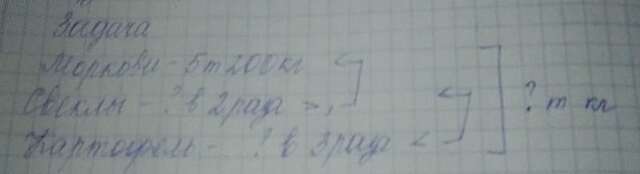 Задача
Моркови - 5т200кг
Свеклы - ? в 2 раза >,
Картофель - ? в 3 раза <
? т кг